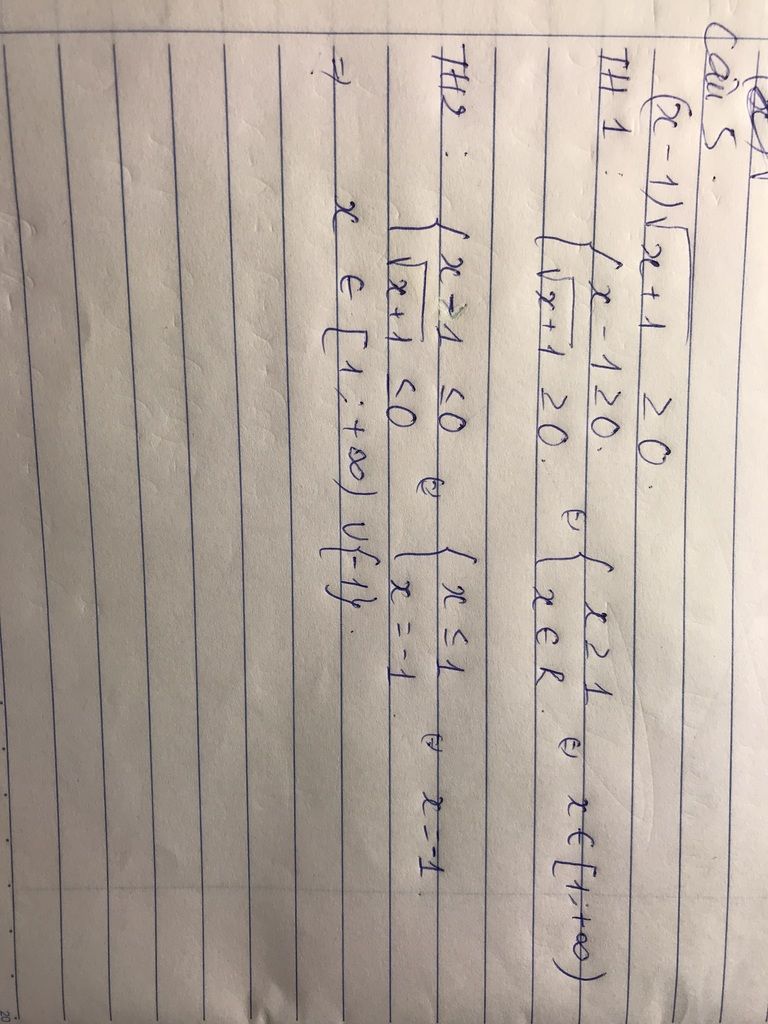 Câu 5.
(x-1)√(x+1) ≥ 0.
TH1: { x-1 ≥ 0. √(x+1) ≥ 0. ⇔ { x ≥ 1 x ∈ R. ⇔ x ∈ [1;+∞)
TH2: { x-1 ≤ 0 √(x+1) ≤ 0 ⇔ { x ≤ 1 x = -1 ⇔ x = -1
⇒ x ∈ [1;+∞) ∪ {-1}.